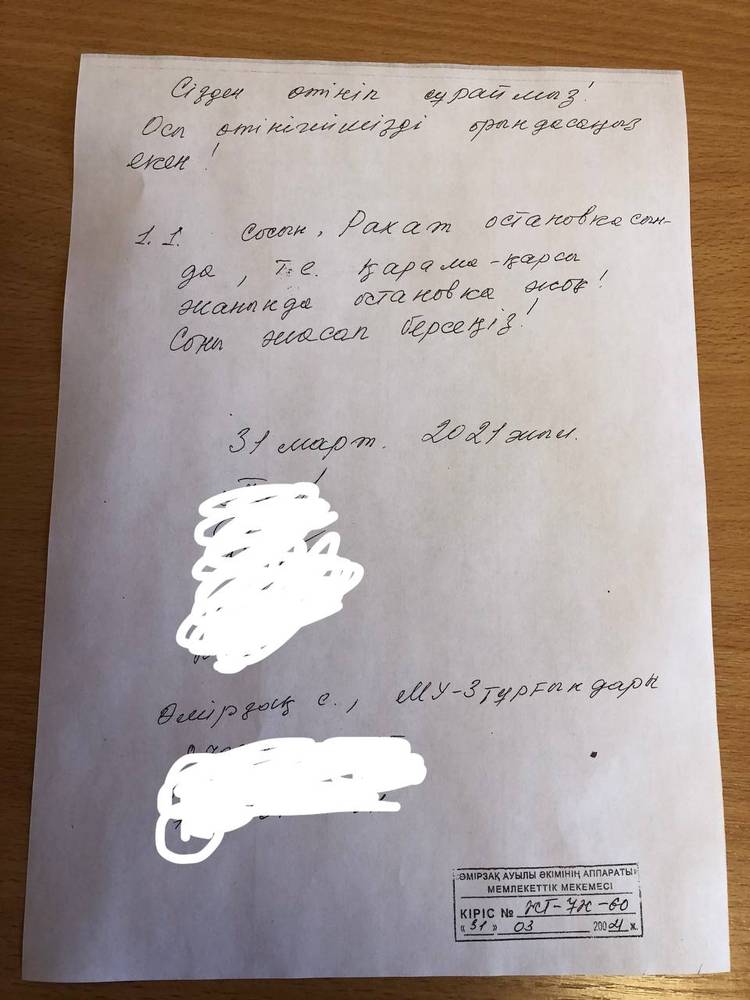 Сізден өтініп сұраймыз!
Осы өтінішімізді орындасаңыз
екен!
1.1. Сосын, Рахат остановкасын-
да, т.е. қарама-қарсы
жанында остановка жоқ!
Соны жасап берсеңіз!
31 март. 2021 жыл.
Өмірзақ с., МУ-3 тұрғындары
"ӨМІРЗАҚ АУЫЛЫ ӘКІМІНІҢ АППАРАТЫ"
МЕМЛЕКЕТТІК МЕКЕМЕСІ
КІРІС № ЖТ-ЧЖ-60
"31" 03 2021 ж.